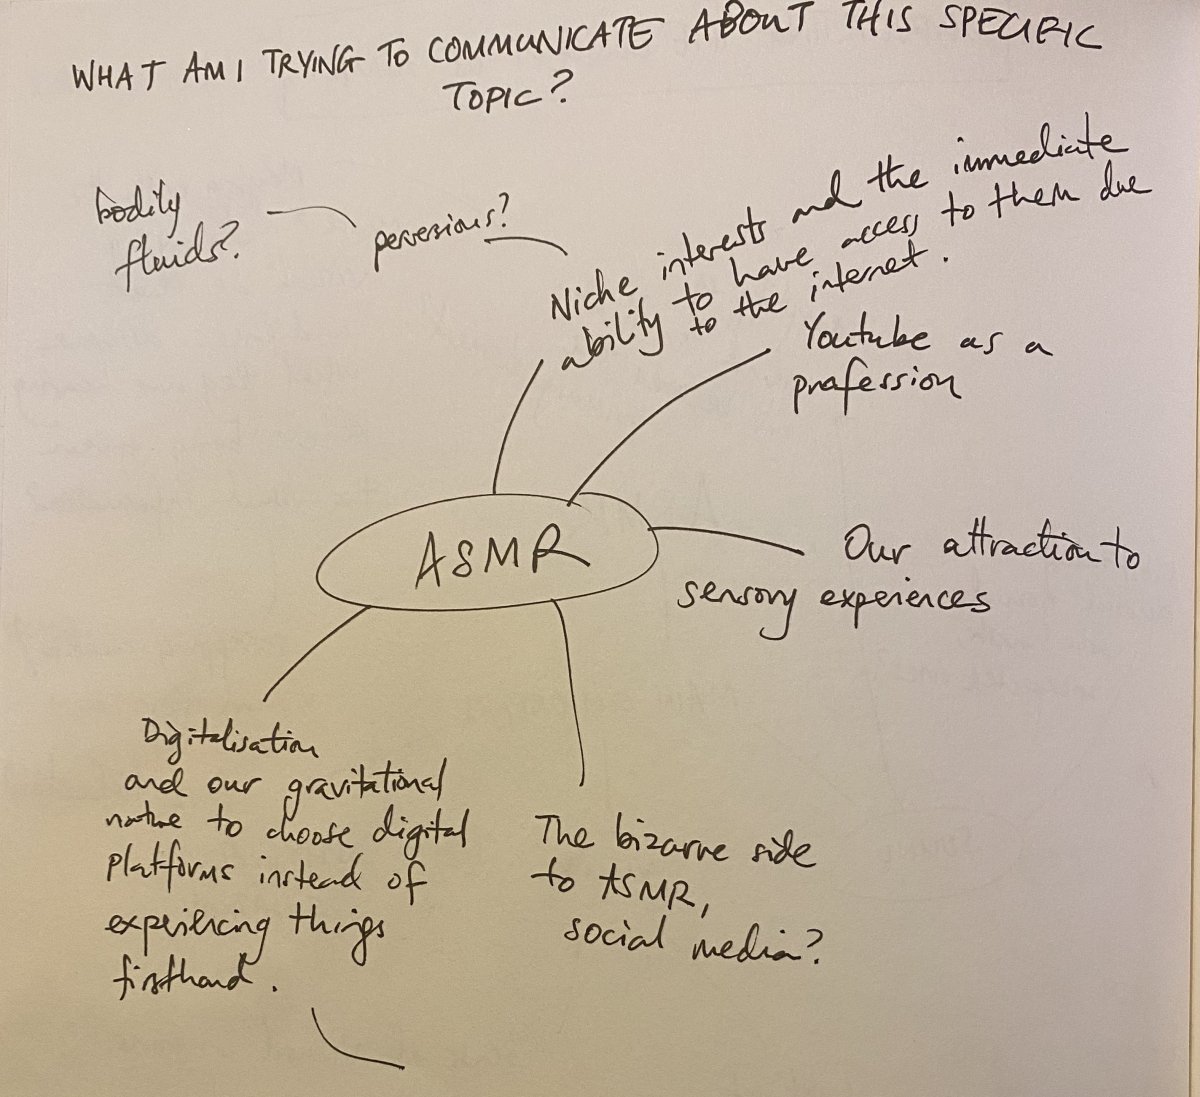 WHAT AM I TRYING TO COMMUNICATE ABOUT THIS SPECIFIC
TOPIC?
bodily
fluids?
perversions?
Niche interests and the immediate
ability to have access to them due
to the internet.
Youtube as a
profession
ASMR
Our attraction to
sensory experiences
Digitalisation
and our gravitational
nature to choose digital
platforms instead of
experiencing things
firsthand.
The bizarre side
to ASMR,
social media?